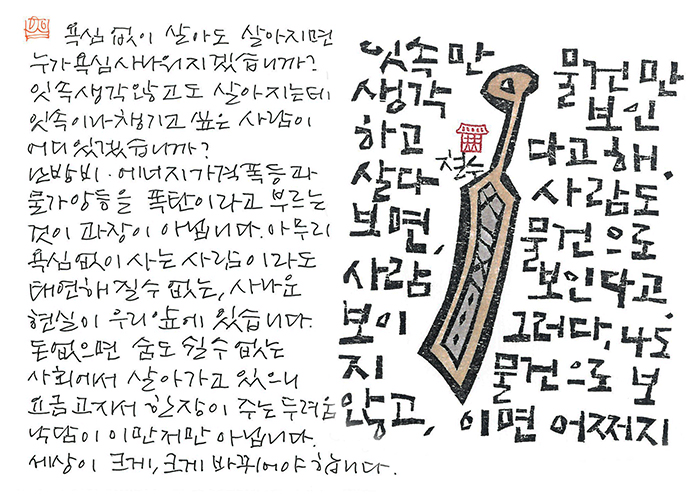 욕심 없이 살아도 살아지면
누가 욕심 사나워지겠습니까?
잇속 생각 않고도 살아지는데
잇속이나 챙기고 싶은 사람이
어디 있겠습니까?
난방비·에너지가격폭등과
물가앙등을 폭탄이라고 부르는
것이 과장이 아닙니다. 아무리
욕심없이 사는 사람이라도
태연해질 수 없는, 사나운
현실이 우리 앞에 있습니다.
돈없으면 숨도 쉴 수 없는
사회에서 살아가고 있으니
요금고지서 한장이 주는 두려움
낙담이 이만저만 아닙니다.
세상이 크게, 크게 바뀌어야 합니다.
잇속만
생각
하고
살다
보면,
사람
보이
지
않고,
물건만
보인
다고 해.
사람도
물건으로
보인다고.
그러다,
물건으로 보
이면 어쩌지
철수